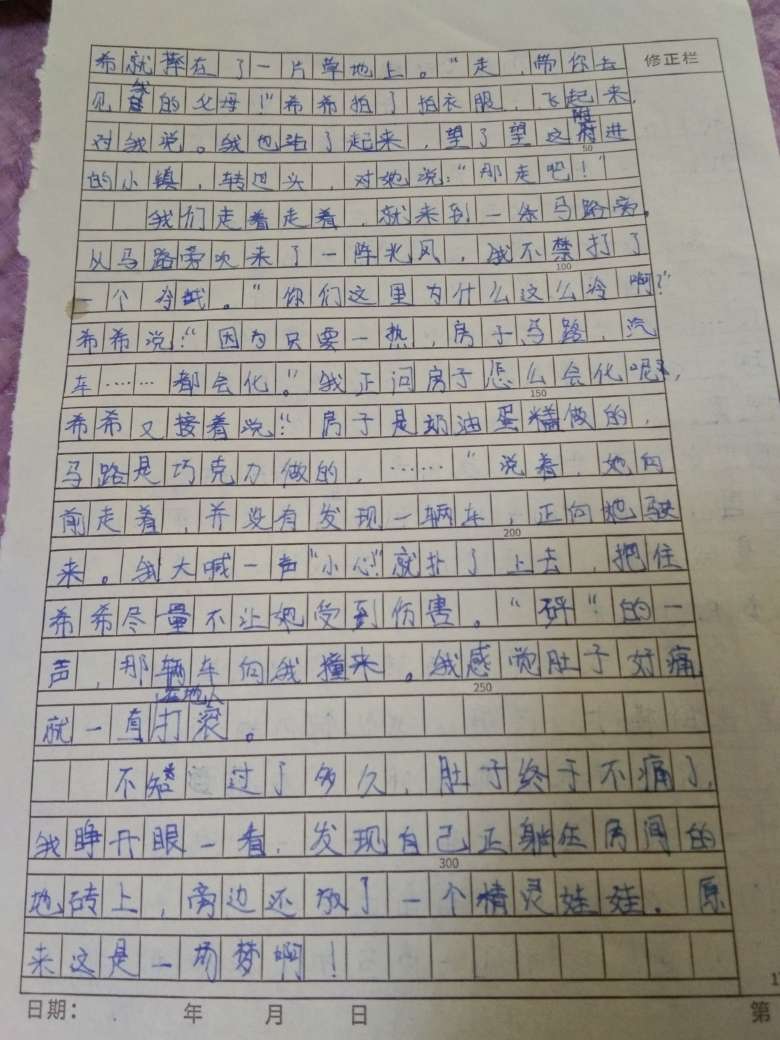 希就摔在了一片草地上。“走,带你去
修正栏
见我的父母!”希希拍了拍衣服,飞起来,
对我说。我也站了起来,望了望这附近
50
的小镇,转过头,对她说:“那走吧!”
我们走着走着,就来到一条马路旁。
从马路旁吹来了一阵北风,我不禁打了
100
一个冷战。“你们这里为什么这么冷啊?”
希希说:“因为只要一热,房子、马路、汽
车……都会化。”我正问房子怎么会化呢,
150
希希又接着说:“房子是奶油蛋糕做的,
马路是巧克力做的,……”说着,她向
前走着,并没有发现一辆车,正向她驶
200
来。我大喊一声“小心!”就扑了上去,把住
希希尽量不让她受到伤害。“砰”的一
声,那辆车向我撞来。我感觉肚子好痛
250
就一直在地上打滚。
不知过了多久,肚子终于不痛了,
我睁开眼一看,发现自己正躺在房间的
300
地砖上,旁边还放了一个精灵娃娃,原
来这是一场梦啊!
日期: 年 月 日 第